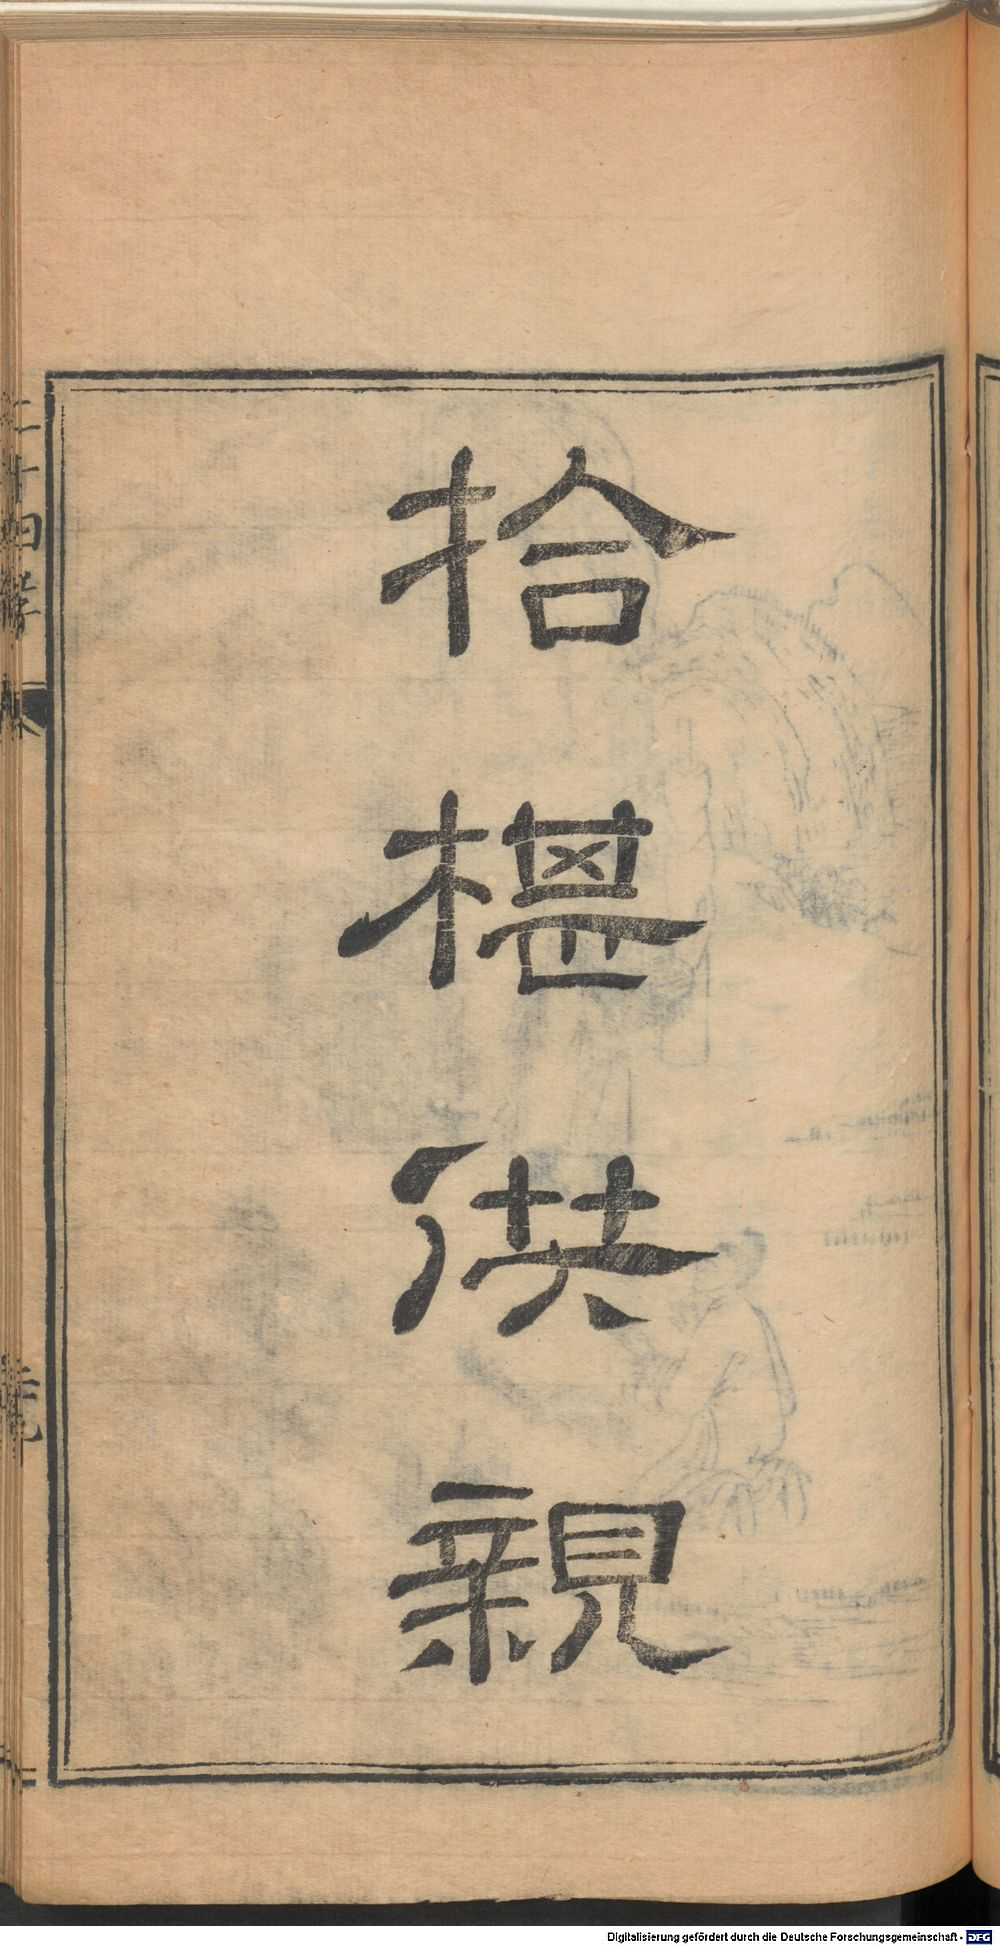 拾椹供親
二十四孝
Digitalisierung gefördert durch die Deutsche Forschungsgemeinschaft - DFG